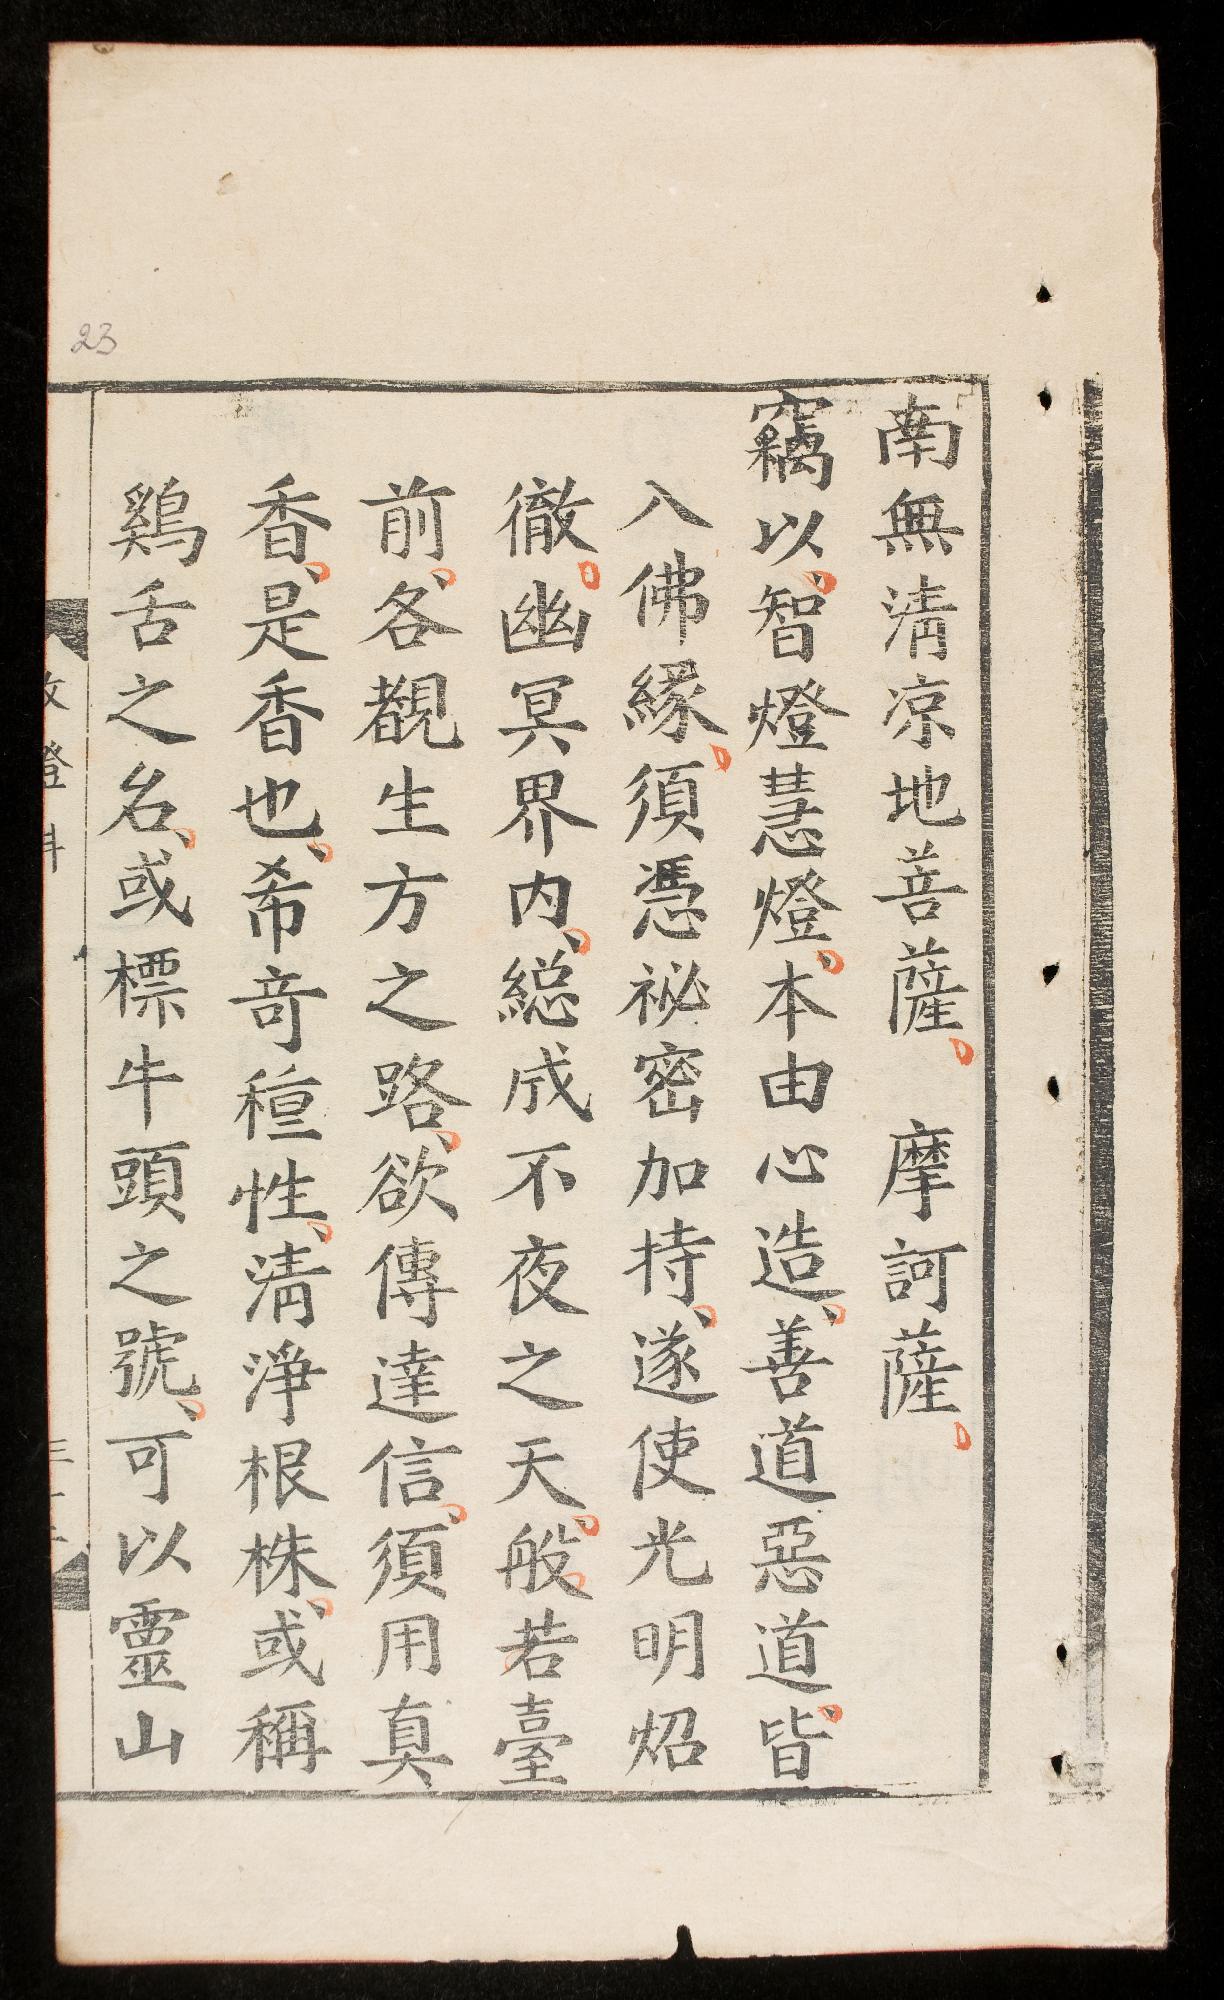 南無淸凉地菩薩。 摩訶薩。
竊以、智燈慧燈、本由心造、善道惡道、皆
入佛緣。須憑祕密加持、遂使光明炤
徹。幽冥界內、総成不夜之天、般若臺
前、各觀生方之路、欲傳達信、須用真
香、是香也、希竒種性、清淨根株、或稱
鷄舌之名、或標牛頭之號、可以靈山
23